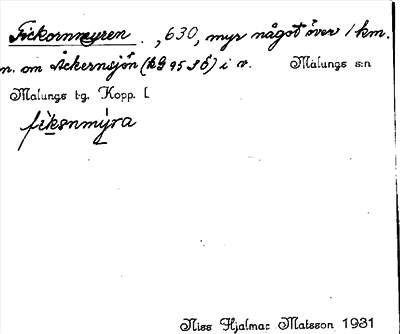 Fickornmyren , 630, myr något över 1 km.
n. om Åckernsjön (kG 95 36) i v. Malungs s:n
Malungs tg. Kopp. l.
fiksnmýra
Niss Hjalmar Matsson 1931